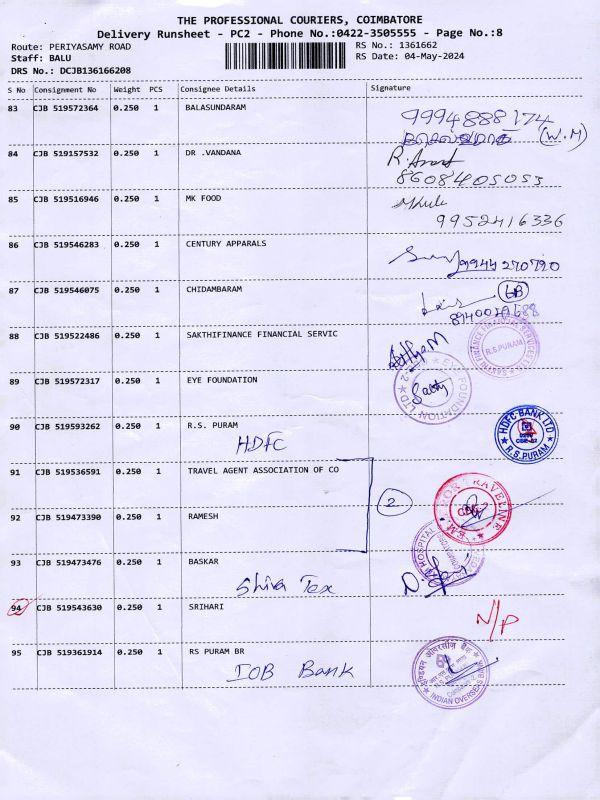 THE PROFESSIONAL COURIERS, COIMBATORE
Delivery Runsheet - PC2 - Phone No.:0422-3505555 - Page No.:8
Route: PERIYASAMY ROAD
RS No.: 1361662
Staff: BALU
RS Date: 04-May-2024
DRS No.: DCJB136166208
S No Consignment No Weight PCS Consignee Details Signature
83 CJB 519572364 0.250 1 BALASUNDARAM
9994888174
(W.M)
84 CJB 519157532 0.250 1 DR .VANDANA
8608405053
85 CJB 519516946 0.250 1 MK FOOD
9952416336
86 CJB 519546283 0.250 1 CENTURY APPARALS
9944270790
87 CJB 519546075 0.250 1 CHIDAMBARAM
88 CJB 519522486 0.250 1 SAKTHIFINANCE FINANCIAL SERVIC
R.S.PURAM
89 CJB 519572317 0.250 1 EYE FOUNDATION
90 CJB 519593262 0.250 1 R.S. PURAM
HDFC
HDFC BANK LTD
R.S.PURAM
91 CJB 519536591 0.250 1 TRAVEL AGENT ASSOCIATION OF CO
2
92 CJB 519473390 0.250 1 RAMESH
93 CJB 519473476 0.250 1 BASKAR
Shiva Tex
94 CJB 519543630 0.250 1 SRIHARI
N/P
95 CJB 519361914 0.250 1 RS PURAM BR
IOB Bank
इण्डियन ओवरसीज़ बैंक
INDIAN OVERSEAS BANK